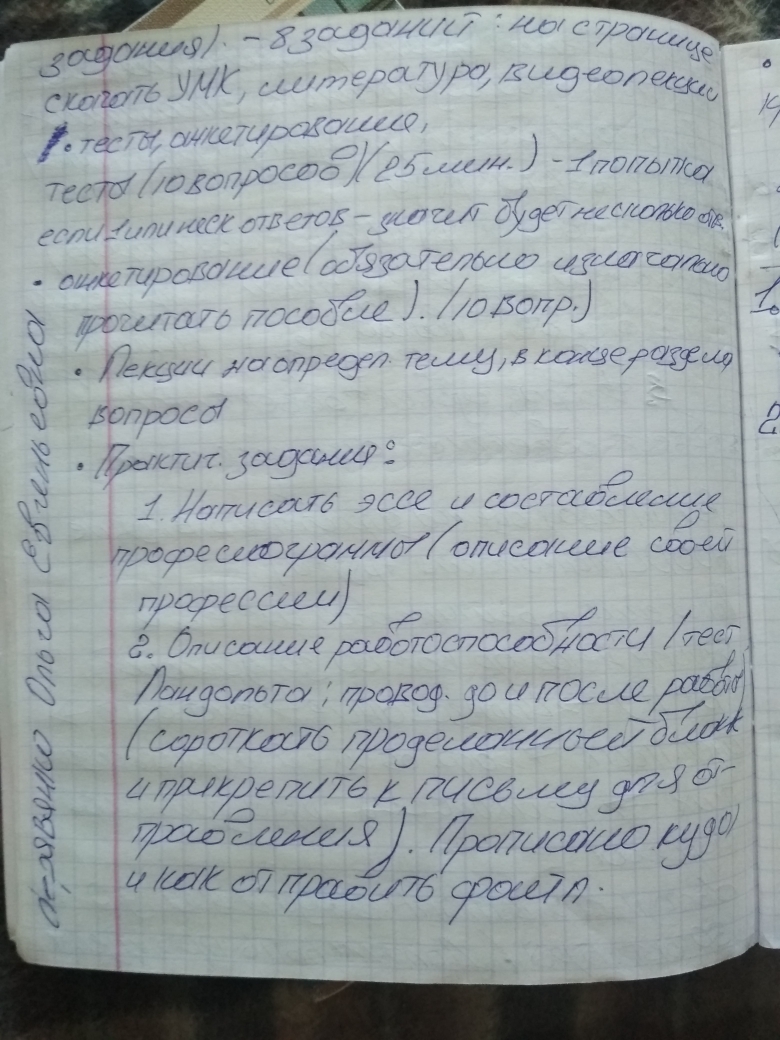 задания). – 8 заданий: на странице
скачать УМК, литература, видеолекции
1. тесты, анкетирования,
тесты (10 вопросов) (25 мин.) – 1 попытка
если 1 или неск ответов – значит будет несколько отв.
• анкетирование (обязательно изначально
прочитать пособие). (10 вопр.)
• Лекции на определ. тему, в конце раздела
вопросы
• Практич. задания:
1. Написать эссе и составление
профессиограммы (описание своей
профессии)
2. Описание работоспособности (тест
Ландольта; провод. до и после работы
(сфоткать проделанный бланк
и прикрепить к письму для от-
правления). Прописано куда
и как отправить файл.
Ольга Евгеньевна
1.
2